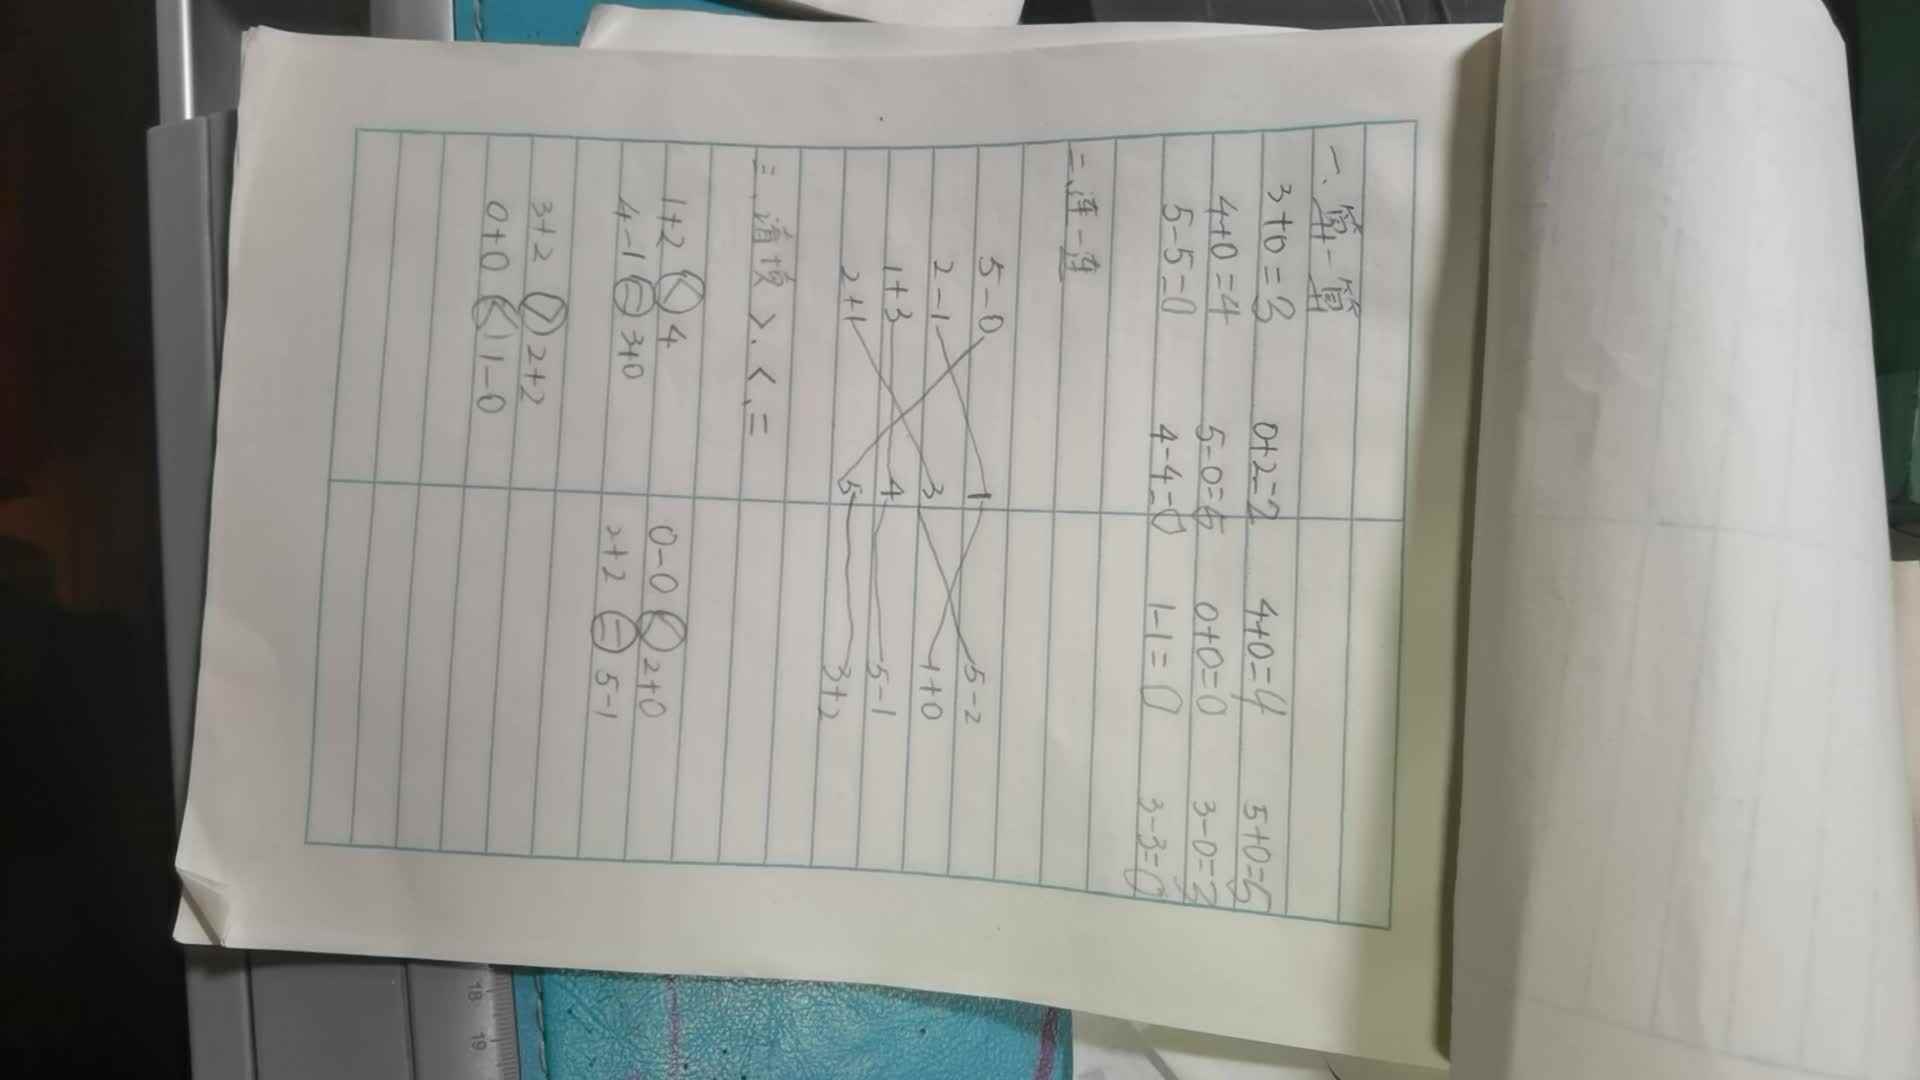 一、算一算
3+0=3 0+2=2 4+0=4 5+0=5
4+0=4 5-0=5 0+0=0 3-0=3
5-5=0 4-4=0 1-1=0 3-3=0
二、连一连
5-0 1 5-2
2-1 3 1+0
1+3 4 5-1
2+1 5 3+2
三、请填>、<、=
1+2<4 0-0<2+0
4-1=3+0 2+2=5-1
3+2>2+2
0+0<1-0
18 19